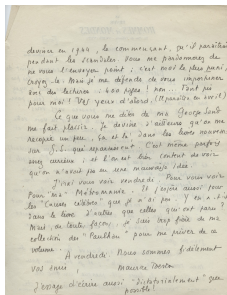 deviner en 1944, le commençant, qu'il paraîtrait
pendant les scandales. Vous me pardonnerez de
ne vous l'envoyer point ; c'est moi le plus puni,
croyez-le. Mais je me défends de vous importuner
avec des lectures. 400 pages ! non... Tant pis
pour moi ! Vos yeux d'abord. (Il paraîtra en avril)
Ce que vous me dites de ma George Sand
me fait plaisir. Je devine d'ailleurs qu'on me
récupère un peu. On est là dans les livres nouveaux
sur G.S. qui reparaissent. C'est même parfois
assez curieux ; et l'on est bien content de voir
qu'on n'avait pas eu une mauvaise idée.
J'irai vous voir vendredi. Pour vous voir.
Pour ma "Métromanie". Et j'espère aussi pour
les "Causes célèbres" que je n'ai pas. Y a-t-il
dans le livre d'autres que celles qui ont paru ?
Mais, de toute façon, je suis trop fier de ma
collection des "Paulhan" pour me priver de ce
volume.
A vendredi. Nous sommes fidèlement
vos amis,
Maurice Toesca
J'essaye d'écrire aussi "
possible !